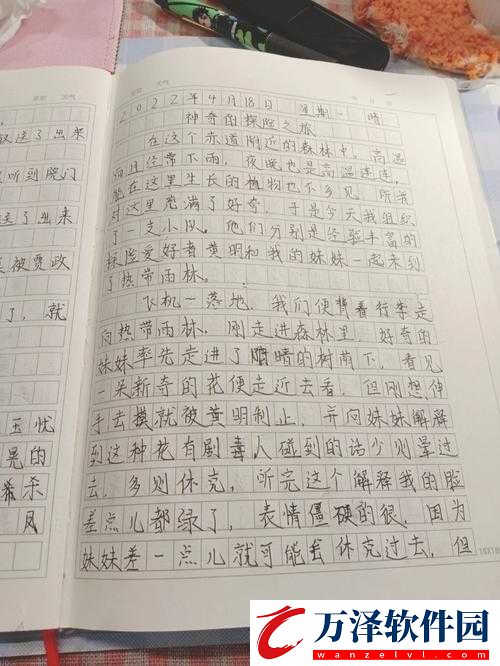 又送了出来
听到院门
送了出来
被贾政
了，就
玉忧
晃的
希杀
风
天气
2022年4月18日 星期一 晴
神奇的探险之旅
在这个赤道附近的森林中，高温
而且经常下雨，夜晚也是高温连连，
能在这里生长的植物也不多见，所
对这里充满了好奇，于是今天我组织
了一支小队。他们分别是经验丰富的
探险爱好者黄明和我的妹妹一起来到
了热带雨林。
飞机一落地，我们便背着行李走
向热带雨林。刚走进森林里，好奇的
妹妹率先走进了阴暗的树荫下，看见
一朵新奇的花便走近去看，但刚想伸
手去摸就被黄明制止，并向妹妹解释
到这种花有剧毒人碰到的话少则晕过
去，多则休克，听完这个解释我的脸
差点儿都绿了，表情僵硬的很，因为
妹妹差一点儿就可能去休克过去，但
万泽软件园
www.wanzelvl.com